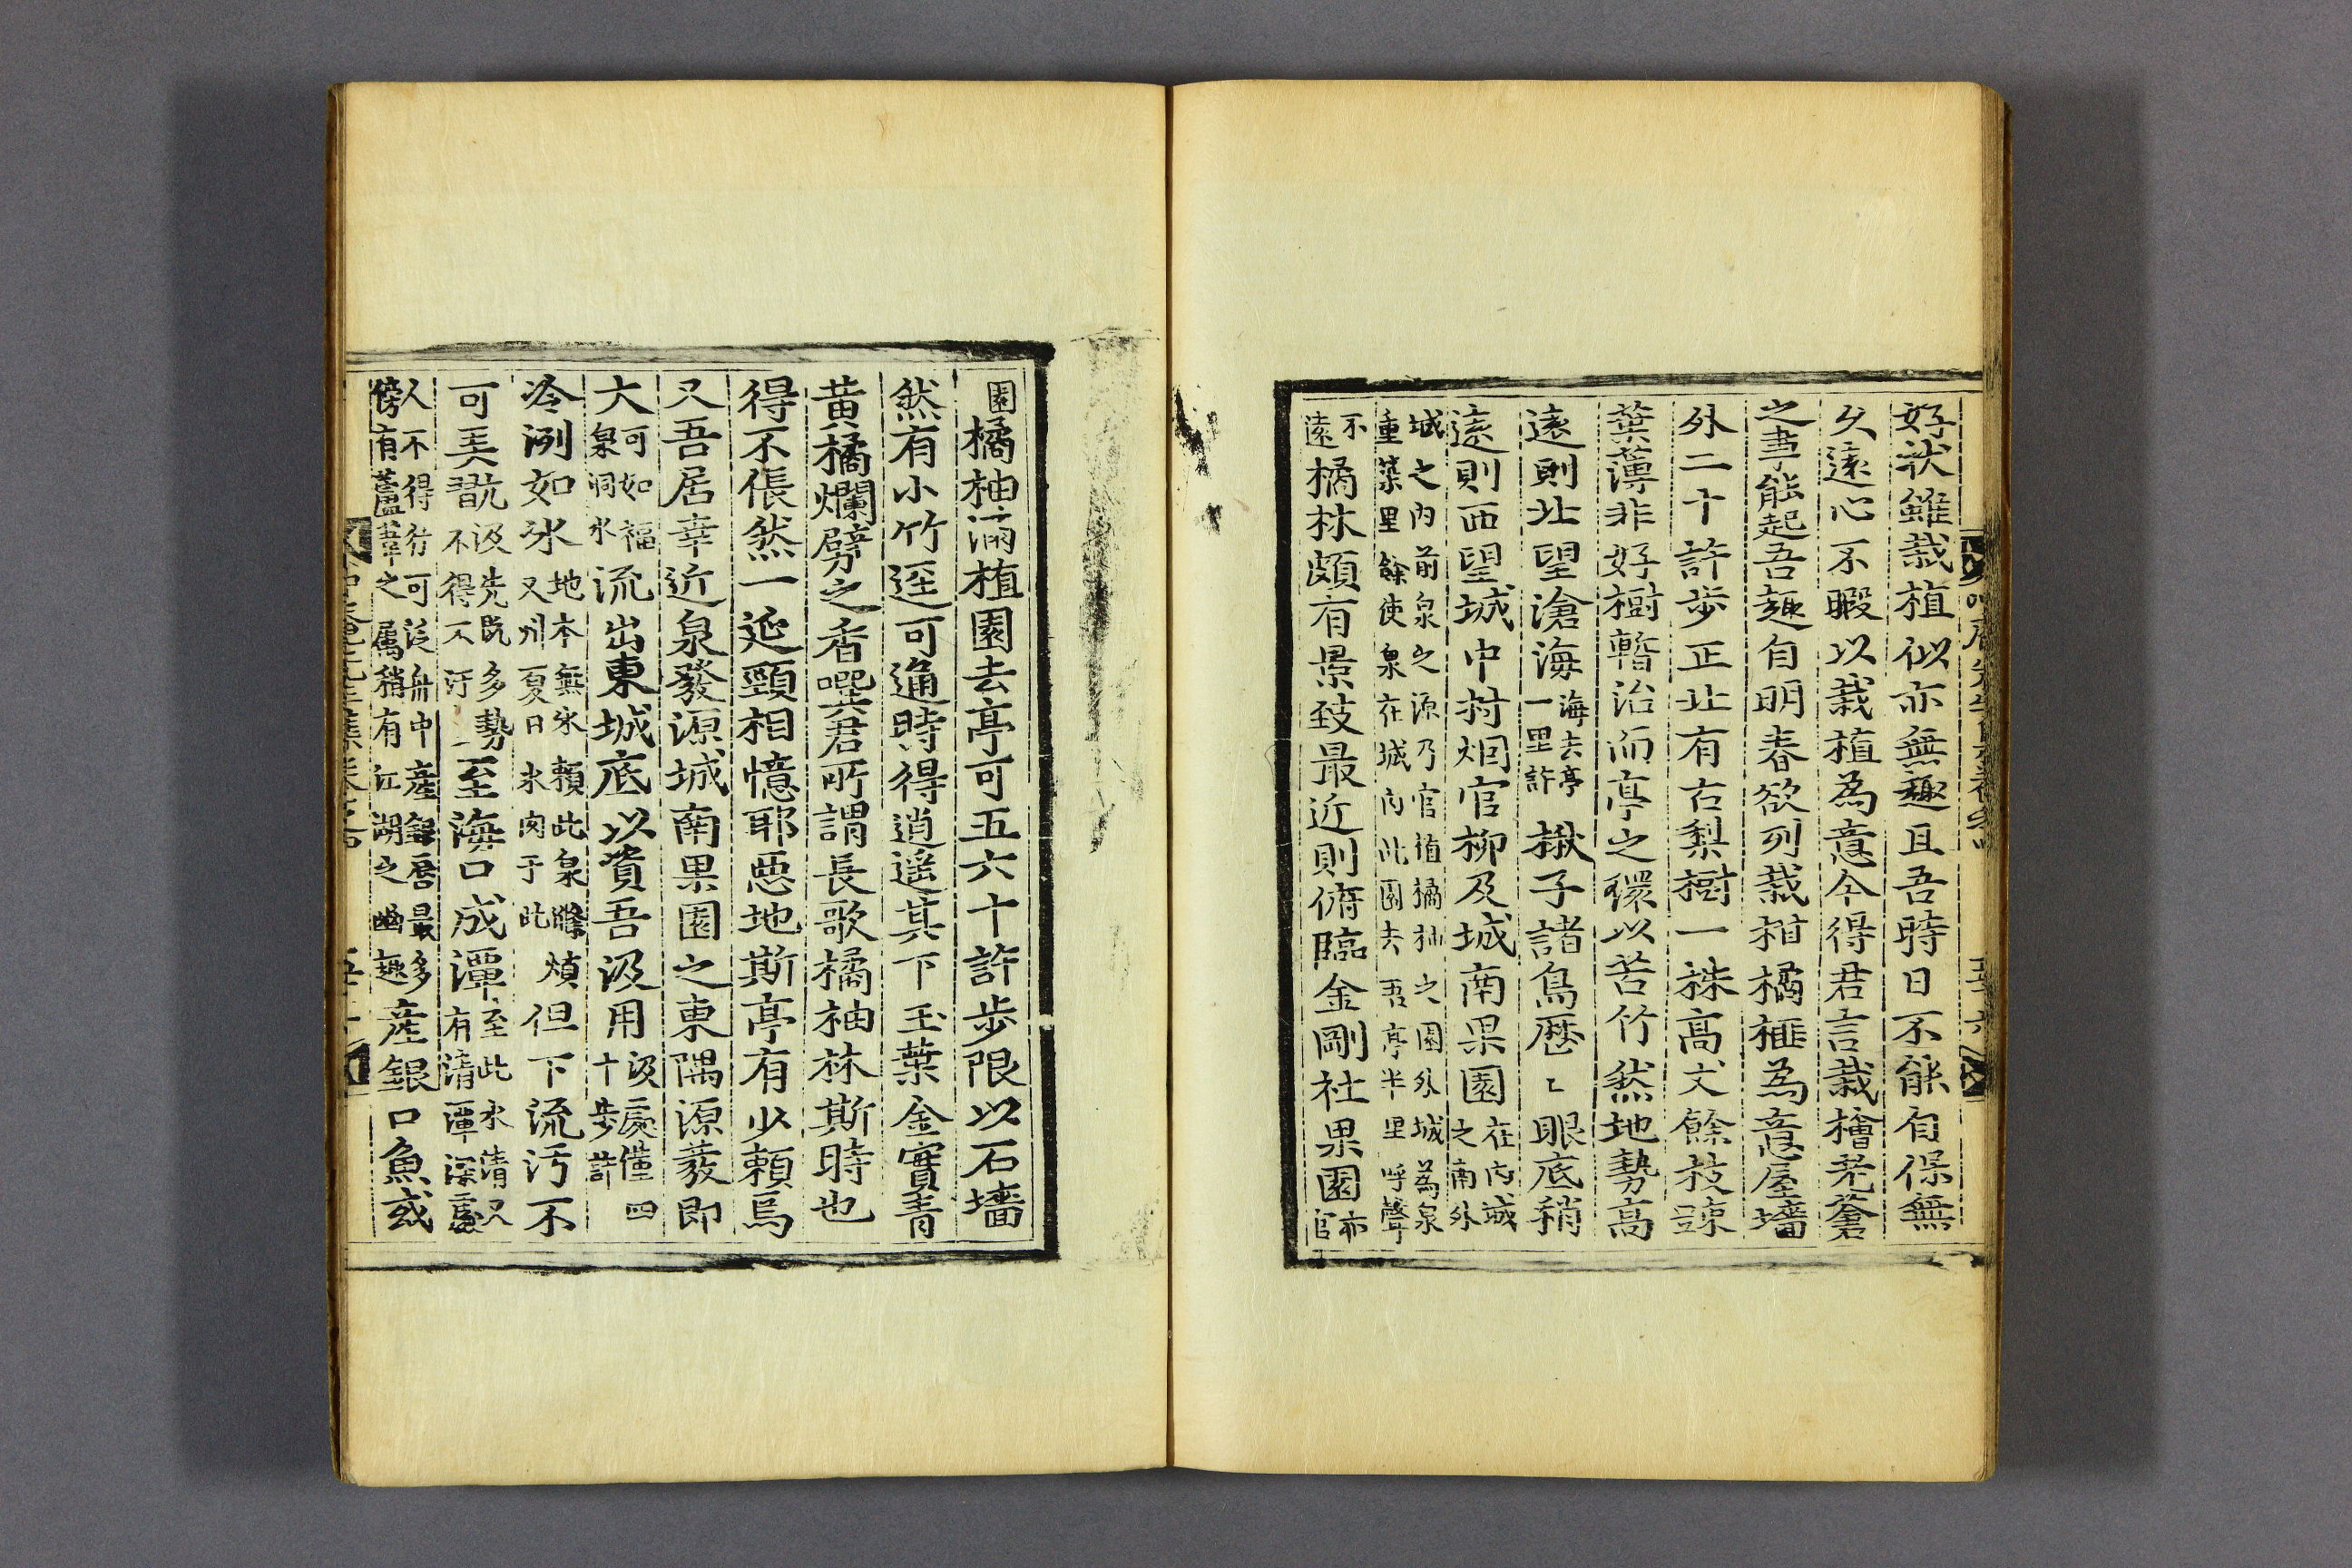 好状雖栽植似亦無趣且吾時日不能自保無
久遠心不暇以栽植為意今得君言栽檜老蒼
之事能起吾趣自明春欲列栽柑橘榧為意屋墻
外二十許步正北有古梨樹一株高丈餘枝踈
葉薄非好樹暫治而亭之環以苦竹然地勢高
遠則北望滄海海去亭一里許楸子諸鳥歷〻眼底稍
遠則西望城中村烟官柳及城南果園在内城之南外
城之内前泉之源乃官植橘柚之園外城為泉
重築里餘使泉在城内此園去吾亭半里呼聲
不遠橘林頗有景致最近則俯臨金剛社果園亦官
園橘柚滿植園去亭可五六十許步限以石墻
然有小竹逕可通時得逍遥其下玉葉金實青
黃橘爛劈之香噀君所謂長歌橘柚林斯時也
得不悵然一延頸相憶耶惡地斯亭有少頼焉
又吾居幸近泉發源城南果園之東隅源發即
大可如福泉洞水流出東城底以資吾汲用汲處僅四十步許
冷洌如氷地本無氷頼此泉滌煩又州夏日求肉于此但下流汚不
可美翫汲洗既多勢不得不汙至海口成潭至此水清又有清潭深
人不得芳可從舟中產銀唇最多
傍有蘆葦之屬稍有江湖之幽趣產銀口魚或